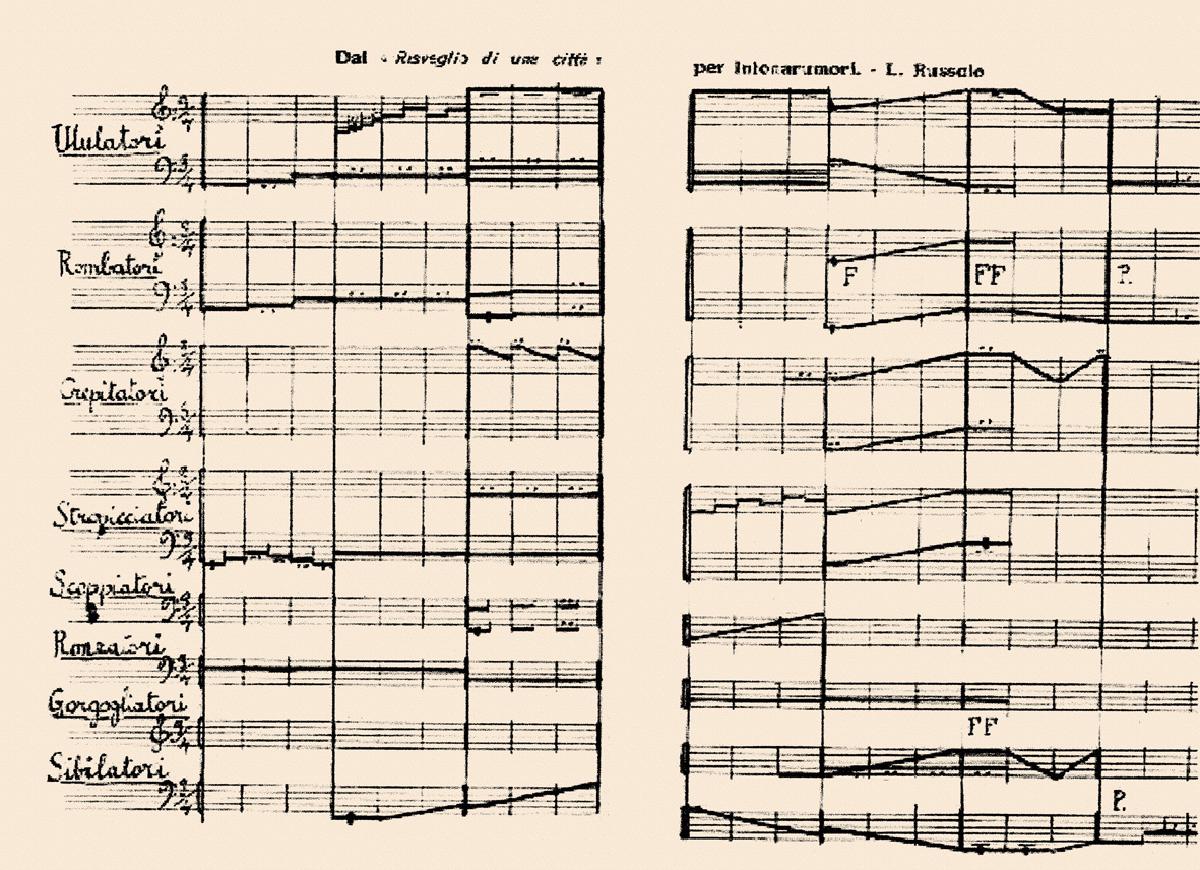 Dal « Risveglio di una città »
per Intonarumori. - L. Russolo
Ululatori
Rombatori
F FF P.
Crepitatori
Stropicciatori
Scoppiatori
Ronzatori
Gorgogliatori
FF
Sibilatori
P.